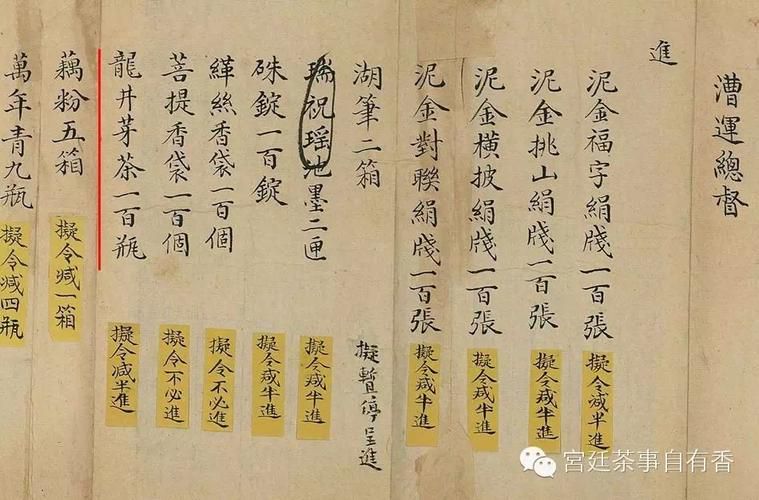 漕運總督
進
泥金福字絹牋一百張
擬令減半進
泥金挑山絹牋一百張
擬令减半進
泥金橫披絹牋一百張
擬令减半進
泥金對聯絹牋一百張
擬令减半進
湖筆二箱
擬暫停呈進
瑞祝瑶池墨二匣
擬令减半進
硃錠一百錠
擬令减半進
緙絲香袋一百個
擬令不必進
菩提香袋一百個
擬令不必進
龍井芽茶一百瓶
擬令减半進
藕粉五箱
擬令减一箱
萬年青九瓶
擬令减四瓶
宫廷茶事自有香